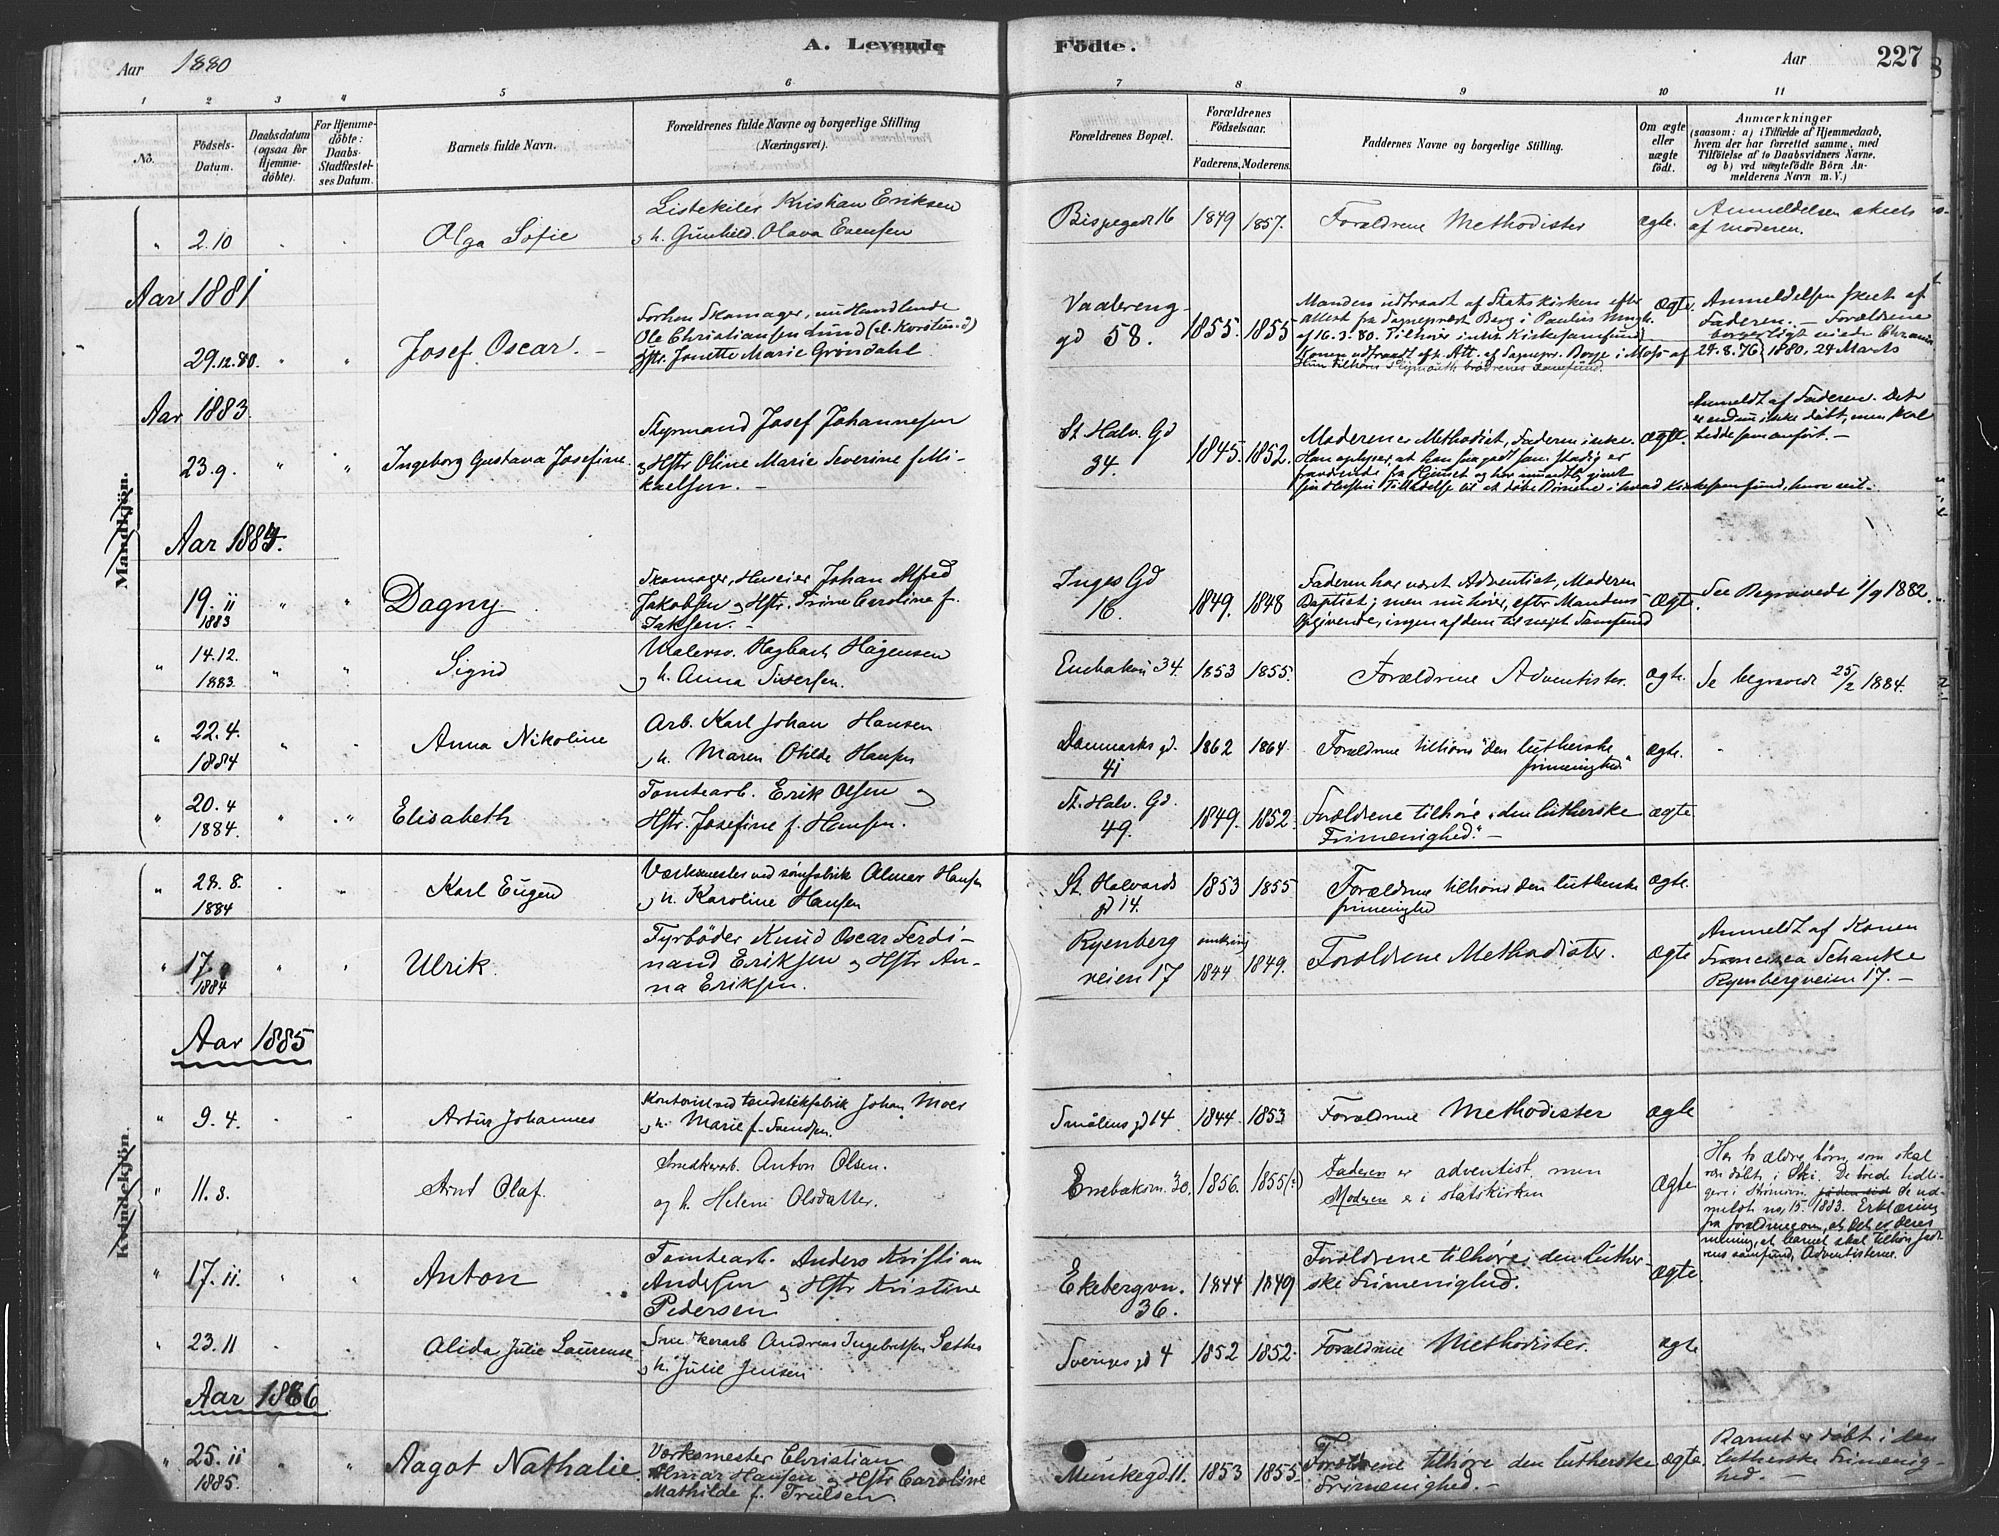 Aar 1880
A. Levende
Födte.
Aar
227
1 2 3 4 5 6 7 8 9 10 11
No.
Födsels-
Datum.
Daabsdatum
(ogsaa for
Hjemme-
döbte).
For Hjemme-
döbte:
Daabs-
Stadfæstel-
ses Datum.
Barnets fulde Navn.
Forældrenes fulde Navne og borgerlige Stilling
(Næringsvei).
Forældrenes Bopæl.
Forældrenes
Födselsaar.
Faderens. Moderens.
Faddernes Navne og borgerlige Stilling.
Om ægte
eller
uægte
födt.
Anmærkninger
(saasom: a) i Tilfælde af Hjemmedaab,
hvem der har forrettet samme, med
Tilföielse af to Daabsvidners Navne,
og b) ved uægtefödte Börn An-
melderens Navn m. V.)
Mandkjön.
" 2.10 " " Olga Sofie
Kristian Eriksen
og h. Gunhild Olava Evensen
Bispegade 16 1849 1857.
Forældrene Methodister
ægte.
Anmeldelsen skeet
af moderen.
Aar 1881
29.12.80. " " Josef Oscar. -
Forhen Skomager, nu Handlende
Ole Christiansen Lund
Hstr. Jonette Marie Gröndahl
Vaalereng
gd 58. 1855. 1855
Manden udtraadt af Statskirken efter
Attest fra Sognepræst Berg i Paulus Mngh.
af 16.3.80. Tilhörer intet Kirkesamfund
Konen udtraadt efter Att. af Sognepr. Borge i Moss af
Hun tilhörer Plymouth brödrenes Samfund.
Ægte.
Anmeldelsen skeet af
Faderen. - Forældrene
borgerligt viede Chrania
24.8.76 1880. 24 Marts
Aar 1883
23.9. " " Ingeborg Gustava Josefine
Styrmand Josef Johannesen
og Hstr Oline Marie Severine f. Mi-
kaelsen. -
St. Halv. Gd
34 1845. 1852.
Moderen er Methodist, Faderen ikke.
Han oplyser, at han saagodt som stadig er
fraværende fra Hjemmet og har
sin Hustru Tilladelse til at döbe Börnene i hvad Kirkesamfund, hun vil.-
ægte.
Anmeldt af Faderen. Det
er endnu ikke döbt, men skal
hedde som anfört. -
Aar 1884.
19.11
1883 " " Dagny
Skomager, Huseier Johan Alfred
Jakobsen og Hstr. Trine Caroline f.
Isaksen. -
Inges Gd
16. 1849. 1848
Faderen har været Adventist, Moderen
Baptist; men nu hörer, efter Mandens
Opgivende, ingen af dem til noget Samfund
Ægte.
See Begravede 1/9 1882.
" 14.12.
1883. " " Sigrid
Malersv. Hagbart Hagensen
og h. Anna Siversen.
Enebakv. 34. 1853 1855.
Forældrene Adventister.
ægte.
Se begravede 25/2 1884.
" 22.4.
1884 " " Anna Nikoline
Arb. Karl Johan Hansen
og h. Maren Otilde Hansen
Danmarks gd.
41 1862 1864.
Forældrene tilhöre "den lutherske
frimenighed."
ægte.
" 20.4
1884. " " Elisabeth
Tomtearb. Erik Olsen og
Hstr. Josefine f. Hansen.
St. Halv. Gd.
49. 1849. 1852.
Forældrene tilhöre "den lutherske
Frimenighed." -
ægte
Kvindekjön.
" 28.8.
1884 " " Karl Eugen
Værkmester ved sömfabrik Almar Hansen
og h. Karoline Hansen
St. Halvards
gd 14. 1853 1855
Forældrene tilhöre den lutherske
frimenighed
ægte.
" 17.
1884 " " Ulrik.
Fyrböder Knud Oscar Ferdi-
nand Eriksen og Hstr An-
na Eriksen.
Ryenberg
veien 17
omkring
1844 1849.
Forældrene Methodister.
ægte
Anmeldt af Konen
Francisca Schanke
Ryenbergveien 17. -
Aar 1885
" 9.4. " " Artur Johannes
Kontorist ved tændstikfabrik Johan Moer
og h. Marie f. Svendsen.
Smålens gd 14. 1844. 1853
Forældrene Methodister
ægte
" 11.8. Arnt Olaf.
Snedkerarb. Anton Olsen.
og h. Helene Olsdatter.
Enebakvn. 30. 1856. 1855(?)
Faderen er adventist, men
Moderen er i statskirken
ægte
Har to ældre börn, som skal
være döbte i Ski. De boede tidli-
gere i Strömmen. Se ud-
meldt no. 15. 1883. Erklæring
fra forældrene om, at det er deres
mening, at barnet skal tilhöre fade-
rens samfund, Adventisterne.
" 17.11. " " Anton
Tomtearb. Anders Kristian
Andersen og Hstr Kristine
Pedersen
Ekebergvn.
36. 1844 1849
Forældrene tilhöre den luther-
ske Frimenighed.
ægte
" 23.11 " " Alida Julie Laurense
Snekkerarb Andreas Ingebretsen Sæther
og h. Julie Jensen
Sveriges gd 4 1852 1852.
Forældrene Methodister.
ægte
Aar 1886
" 25.11
1885. " " Aagot Nathalie
Værksmester Christian
Almar Hansen og Hstr Caroline
Mathilde f. Trulsen
Munkegd 11. 1853 1855.
Forældrene tilhöre den lutherske
Frimenighed. -
ægte.
Barnet er döbt i den
lutherske Frimenig-
hed. -